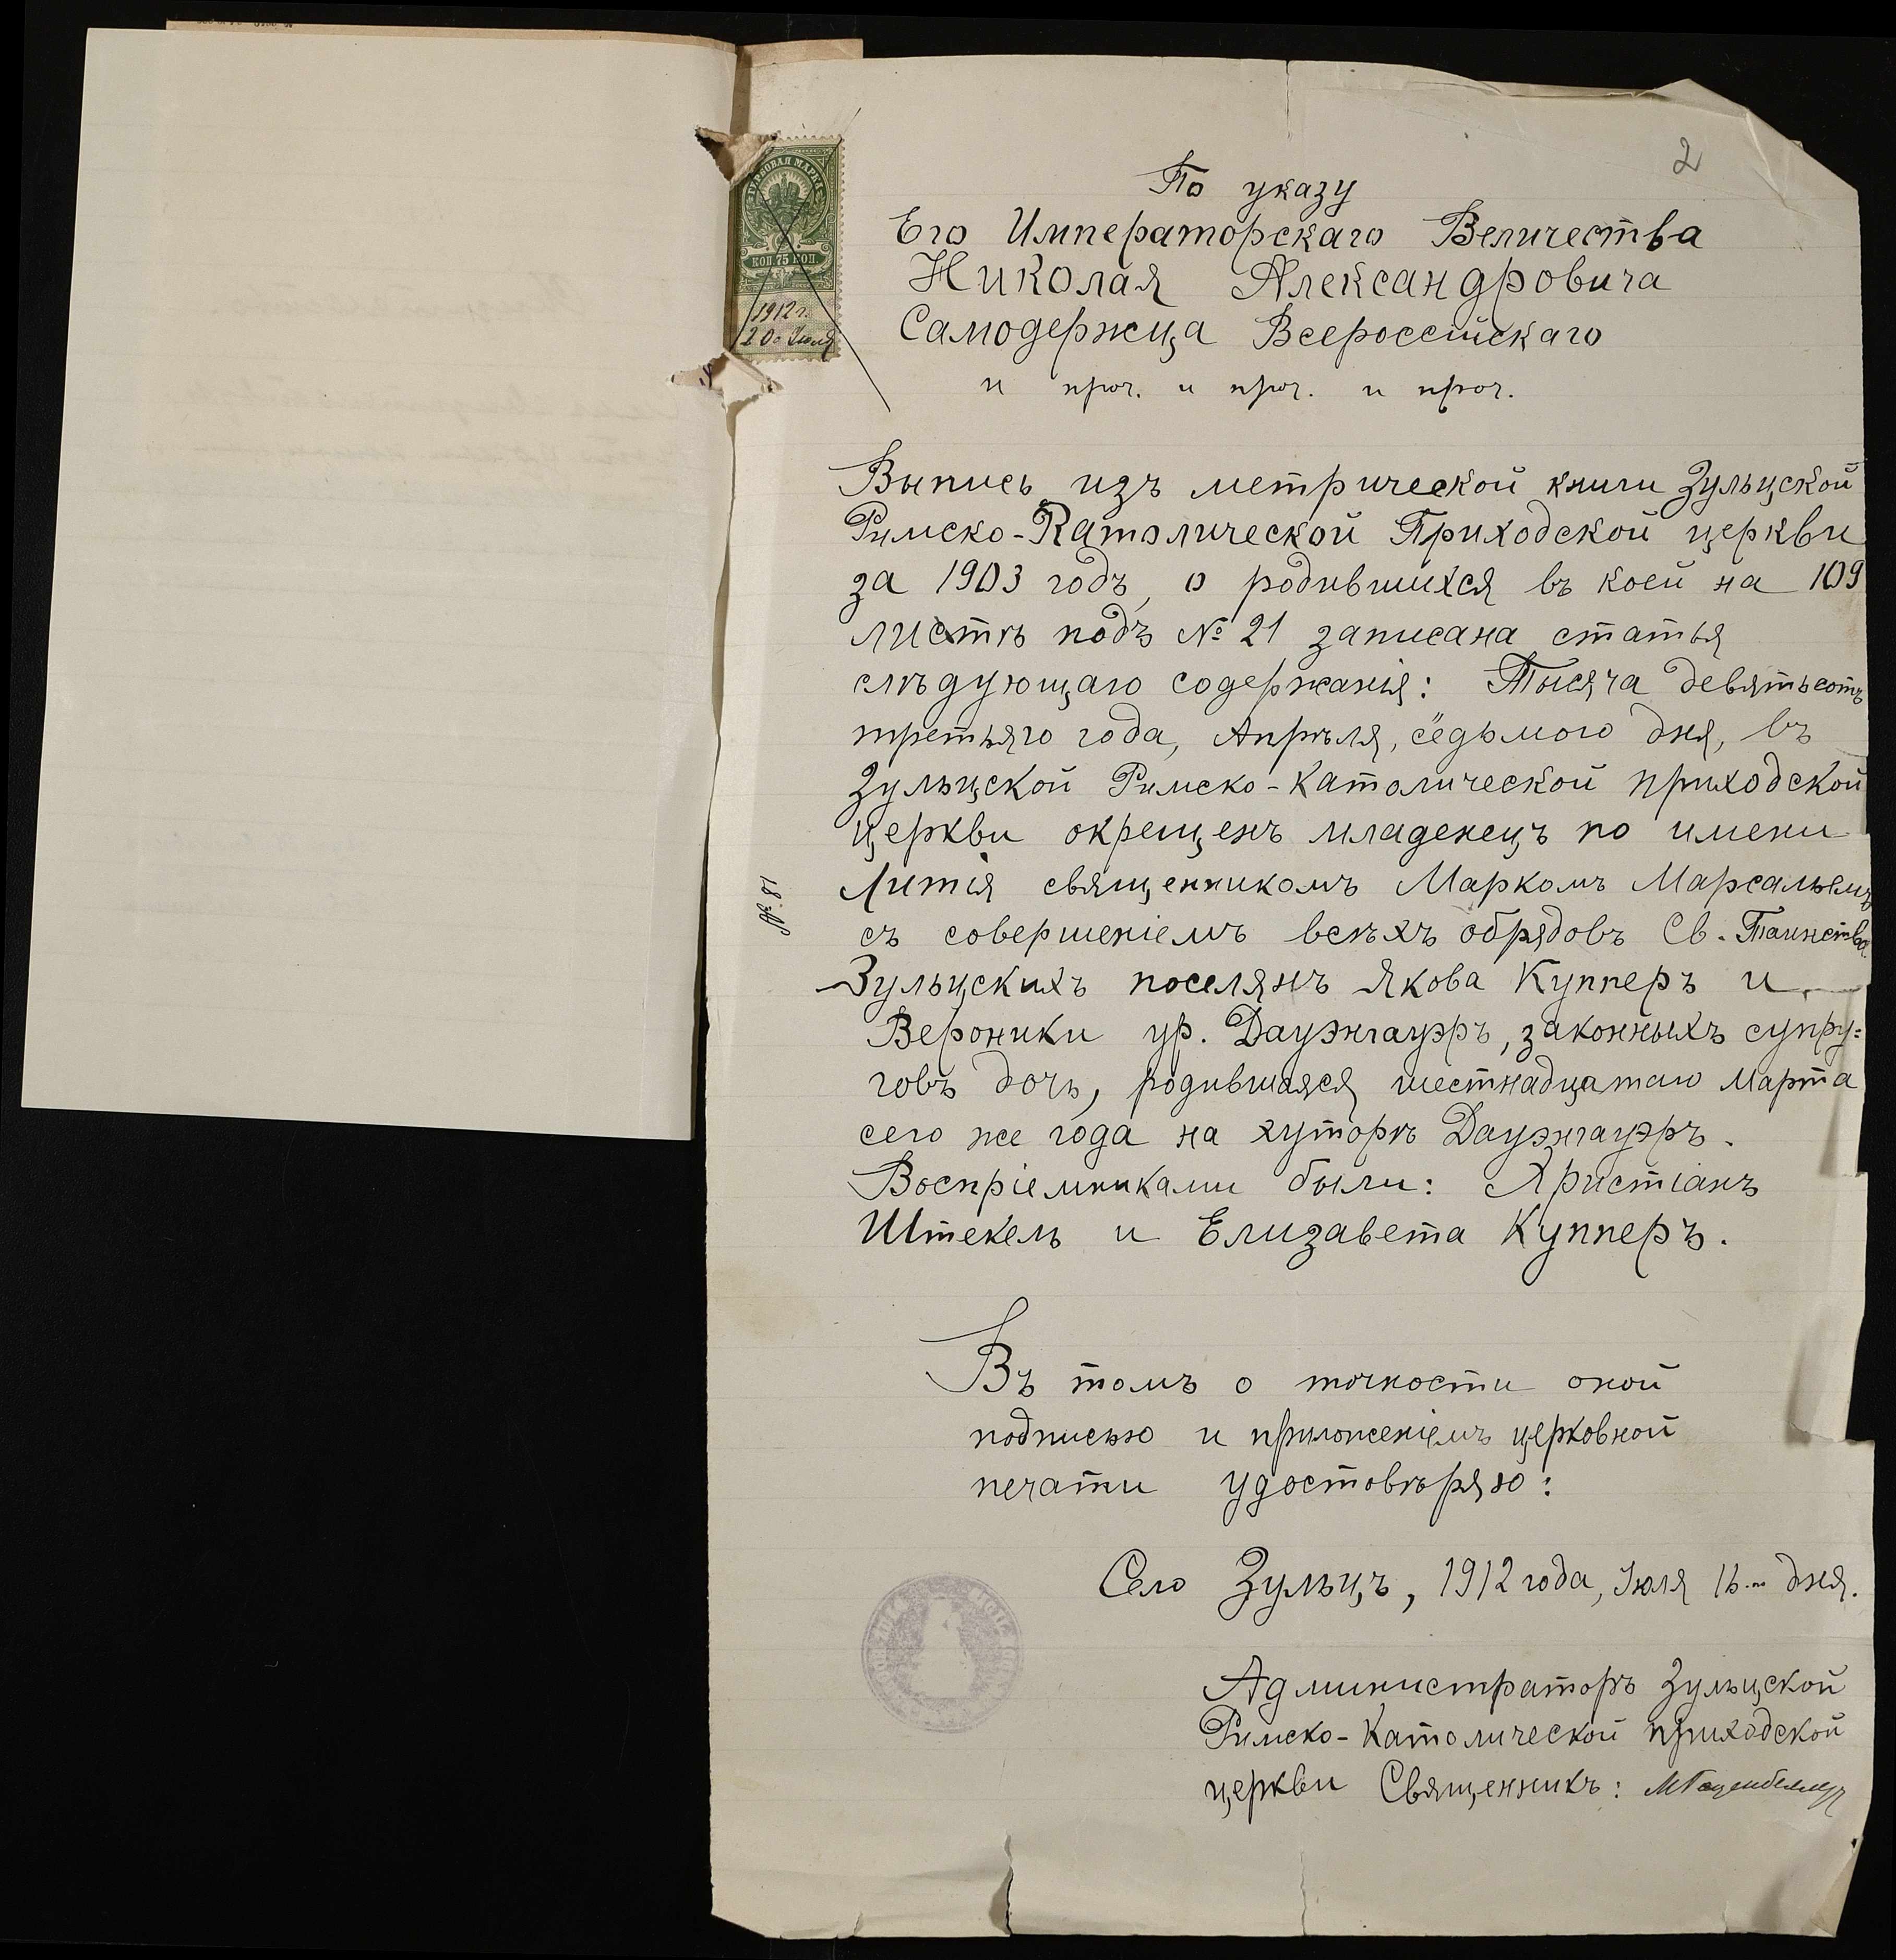 2
ГЕРБОВАЯ МАРКА
КОП. 75 КОП.
1912 г.
20 Іюля
По указу
Его Императорскаго Величества
Николая Александровича
Самодержца Всероссійскаго
и проч. и проч. и проч.
Выпись изъ метрической книги Зульцской
Римско-Католической Приходской церкви
за 1903 годъ, о родившихся въ коей на 109
листѣ подъ № 21 записана статья
слѣдующаго содержанія: Тысяча девятьсотъ
третьяго года, Апрѣля, седьмого дня, въ
Зульцской Римско-Католической приходской
церкви окрещенъ младенецъ по имени
Литія священникомъ Маркомъ Марсальемъ
съ совершеніемъ всѣхъ обрядовъ Св. Таинства
Зульцскихъ поселянъ Якова Купперъ и
Вероники ур. Дауэнгауэръ, законныхъ супру=
говъ дочь, родившаяся шестнадцатаго Марта
сего же года на хуторѣ Дауэнгауэръ.
Воспріемниками были: Христіанъ
Штекель и Елизавета Купперъ.
Въ томъ о точности оной
подписью и приложеніемъ церковной
печати удостовѣряю:
Село Зульцъ, 1912 года, Іюля 16-го дня.
Администраторъ Зульцской
Римско-Католической приходской
церкви Священникъ: